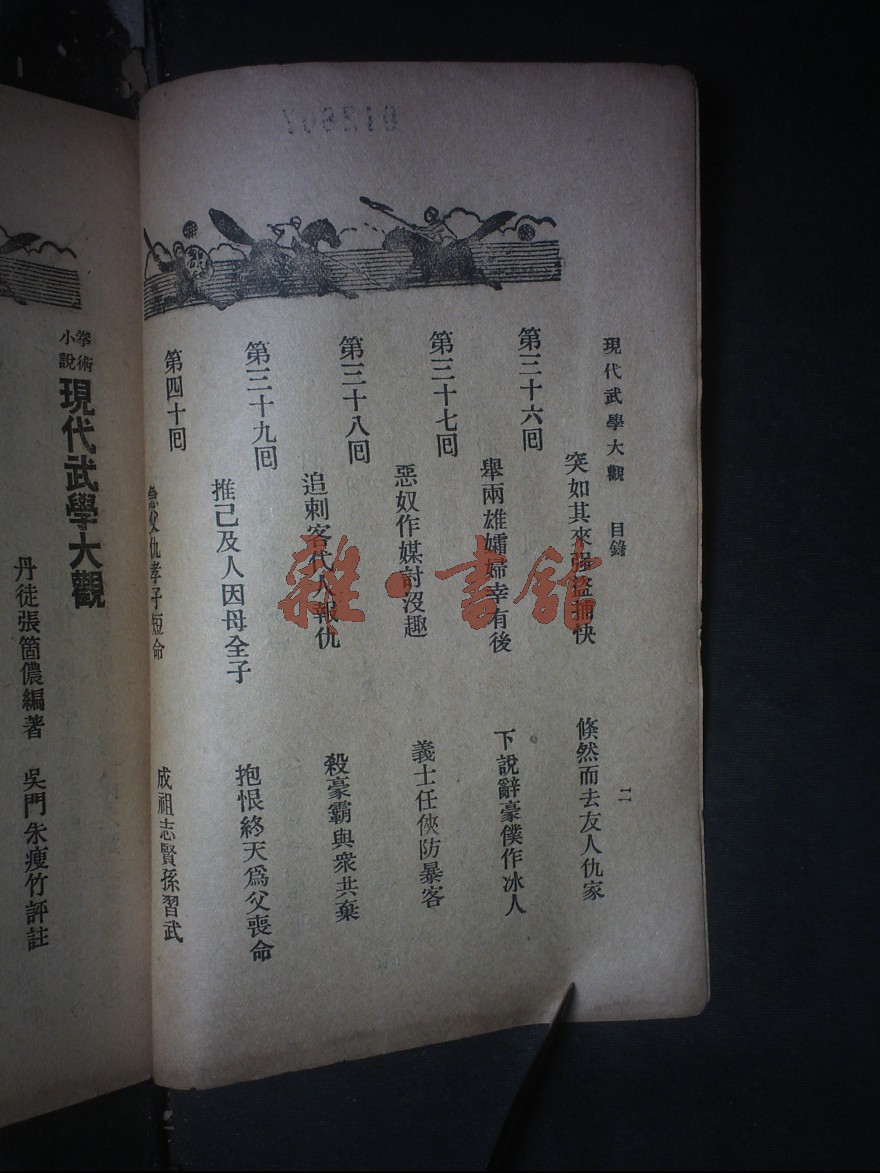 現代武學大觀 目錄 二
突如其來强盜捕快 倏然而去友人仇家
第三十六囘
舉兩雄孀婦幸有後 下說辭豪僕作冰人
第三十七囘
惡奴作媒討沒趣 義士任俠防暴客
第三十八囘
追刺客代人報仇 殺豪霸與衆共棄
第三十九囘
推己及人因母全子 抱恨終天爲父喪命
第四十囘
急父仇孝子短命 成祖志賢孫習武
拳術
小說
現代武學大觀
丹徒張箇儂編著 吳門朱瘦竹評註
雜·書館